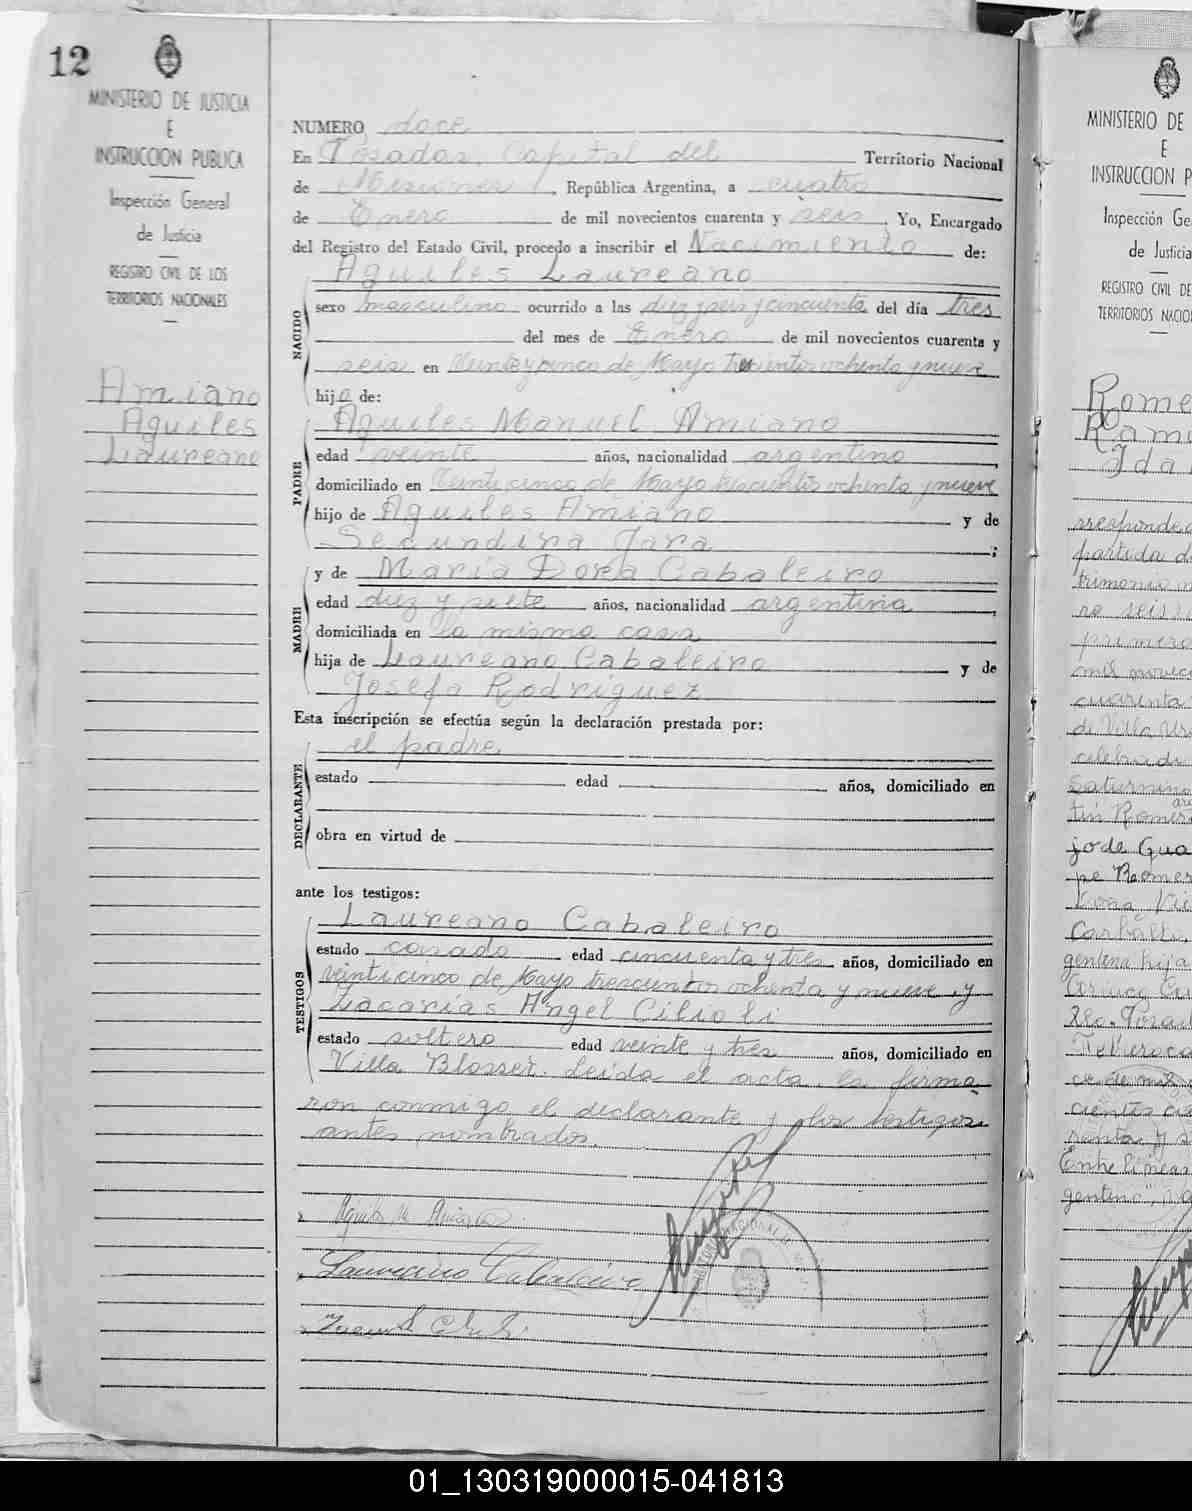 12
MINISTERIO DE JUSTICIA
E
INSTRUCCION PUBLICA
Inspección General
de Justicia
REGISTRO CIVIL DE LOS
TERRITORIOS NACIONALES
Amiano
Aquiles
Laureano
NUMERO doce
En Posadas, Capital del Territorio Nacional
de Misiones, República Argentina, a cuatro
de Enero de mil novecientos cuarenta y seis. Yo, Encargado
del Registro del Estado Civil, procedo a inscribir el Nacimiento de:
NACIDO
Aquiles Laureano
sexo masculino ocurrido a las diez y seis y cincuenta del día tres
del mes de Enero de mil novecientos cuarenta y
seis en Veinte y cinco de Mayo trescientos ochenta y nueve
hijo de:
PADRE
Aquiles Manuel Amiano
edad veinte años, nacionalidad argentino,
domiciliado en Veinticinco de Mayo trescientos ochenta y nueve
hijo de Aquiles Amiano y de
Secundina Jara;
MADRE
y de María Dora Cabaleiro
edad diez y siete años, nacionalidad argentina,
domiciliada en la misma casa
hija de Laureano Cabaleiro y de
Josefa Rodriguez
Esta inscripción se efectúa según la declaración prestada por:
DECLARANTE
el padre
estado edad años, domiciliado en
obra en virtud de
ante los testigos:
TESTIGOS
Laureano Cabaleiro
estado casado edad cincuenta y tres años, domiciliado en
veinticinco de Mayo trescientos ochenta y nueve, y
Zacarías Angel Cilioli
estado soltero edad veinte y tres años, domiciliado en
Villa Blosset. Leida el acta, la firma
ron conmigo el declarante y los testigos
antes nombrados.
Aquiles M Amiano
Laureano Cabaleiro
MINISTERIO DE
E
INSTRUCCION P
Inspección Ge
de Justicia
REGISTRO CIVIL DE
TERRITORIOS NACIO
Rome
Ramo
Ida
rresponde
partida d
trimonio
ro seis
primero
mil novec
cuarenta
de Villa Ur
celebrado
Saturnino
tín Romer
jo de Gua
pe Romer
Carballo,
gentina hija
Rec. Posad
cientos cua
renta y s
Entre lineas
gentino"
01_130319000015-041813